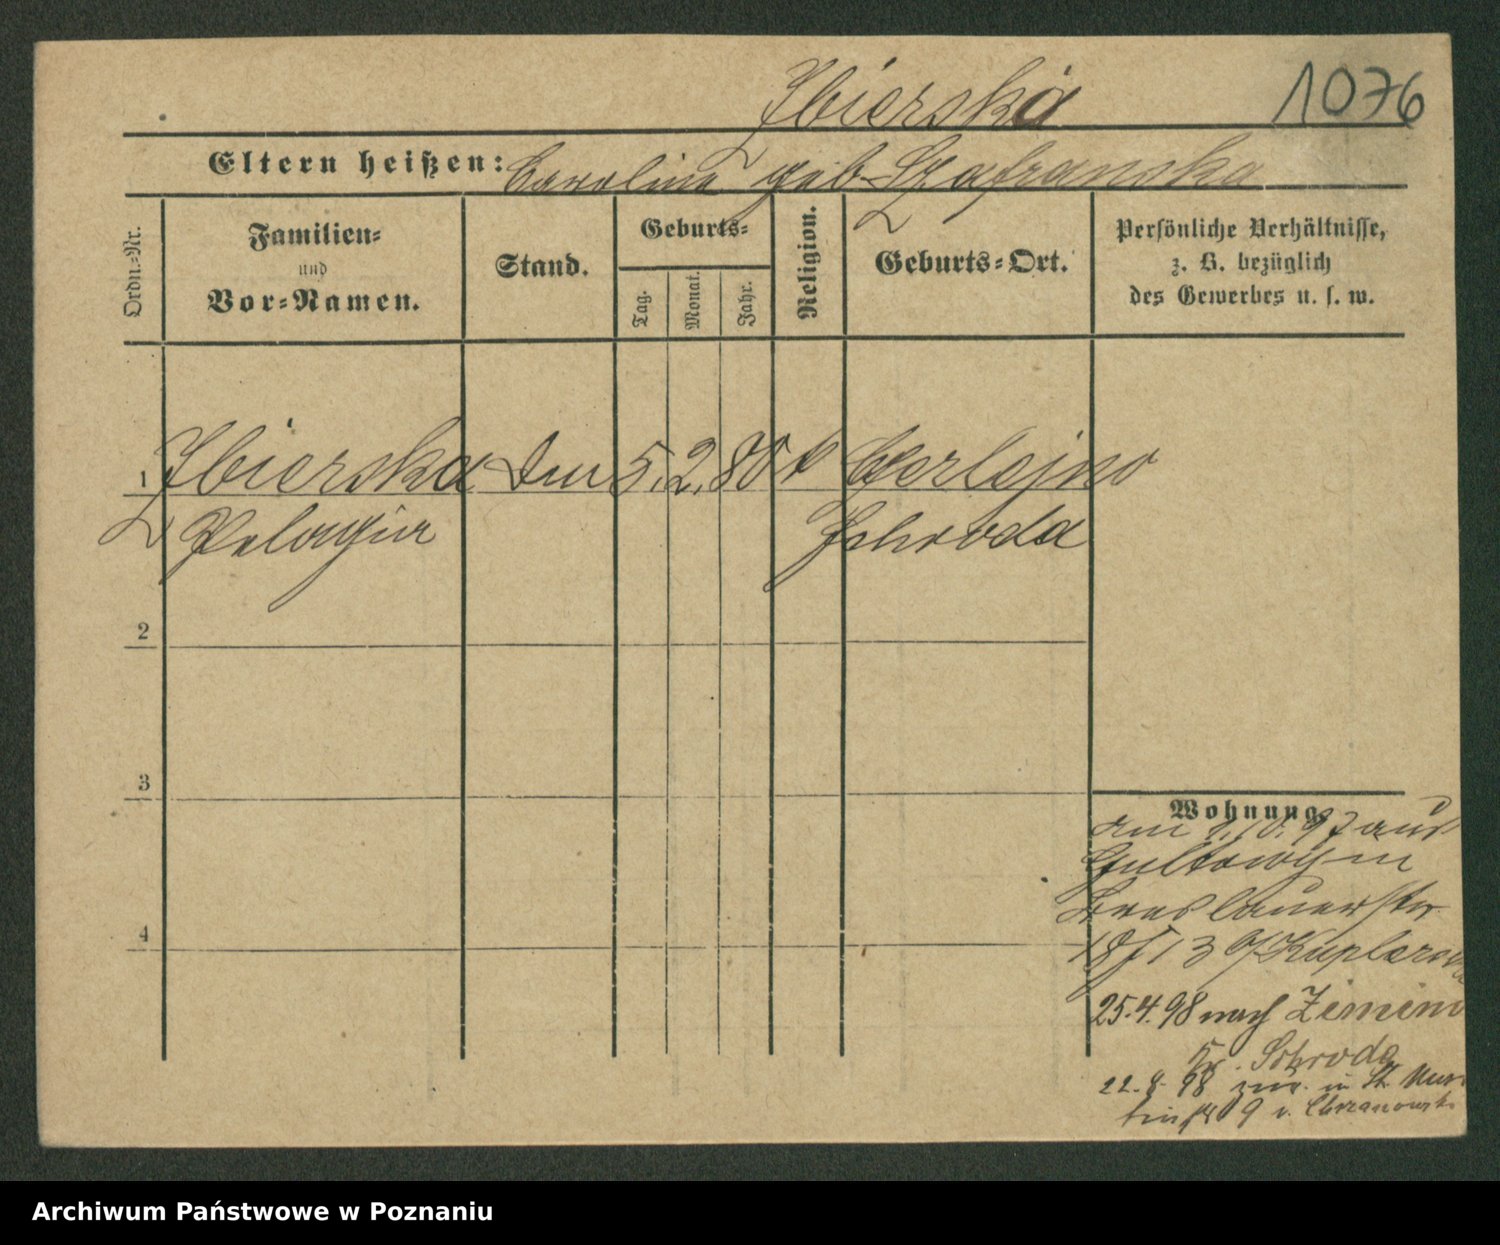 Zbierska
1076
Eltern heißen: Caroline geb. Szafranska
Ordn.-Nr.
Familien-
und
Vor-Namen.
Stand.
Geburts-
Tag.
Monat.
Jahr.
Religion.
Geburts-Ort.
Persönliche Verhältnisse,
z. B. bezüglich
des Gewerbes u. s. w.
1 Zbierska 5. 2. 80 k Czerlejno
Pelagia Schroda
2
3
4
Wohnung
am 1.10.97 aus
Gultowy in
Breslauerstr
25.4.98 nach Zimin
Kr. Schroda
22.8.98 zur. in St. Mar
tinstr 9 b. Chrzanowsk
Archiwum Państwowe w Poznaniu